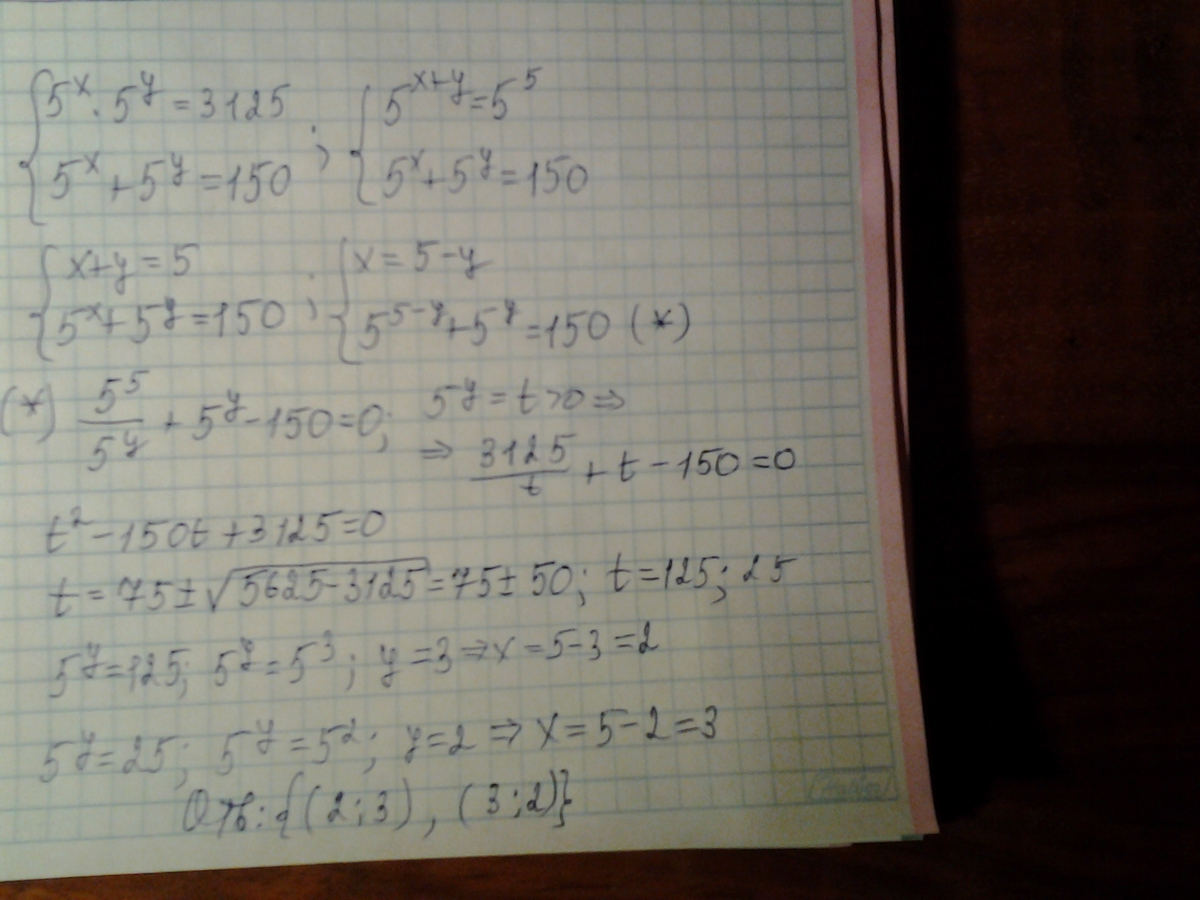 {5^x · 5^y = 3125 ; {5^(x+y) = 5^5
{5^x + 5^y = 150 {5^x + 5^y = 150
{x+y = 5 ; {x = 5-y
{5^x + 5^y = 150 {5^(5-y) + 5^y = 150 (*)
(*) 5^5/5^y + 5^y - 150 = 0; 5^y = t > 0 ⇒
⇒ 3125/t + t - 150 = 0
t² - 150t + 3125 = 0
t = 75 ± √(5625-3125) = 75 ± 50; t = 125; 25
5^y = 125; 5^y = 5^3; y = 3 ⇒ x = 5-3 = 2
5^y = 25; 5^y = 5^2; y = 2 ⇒ x = 5-2 = 3
Отв: {(2;3), (3;2)}